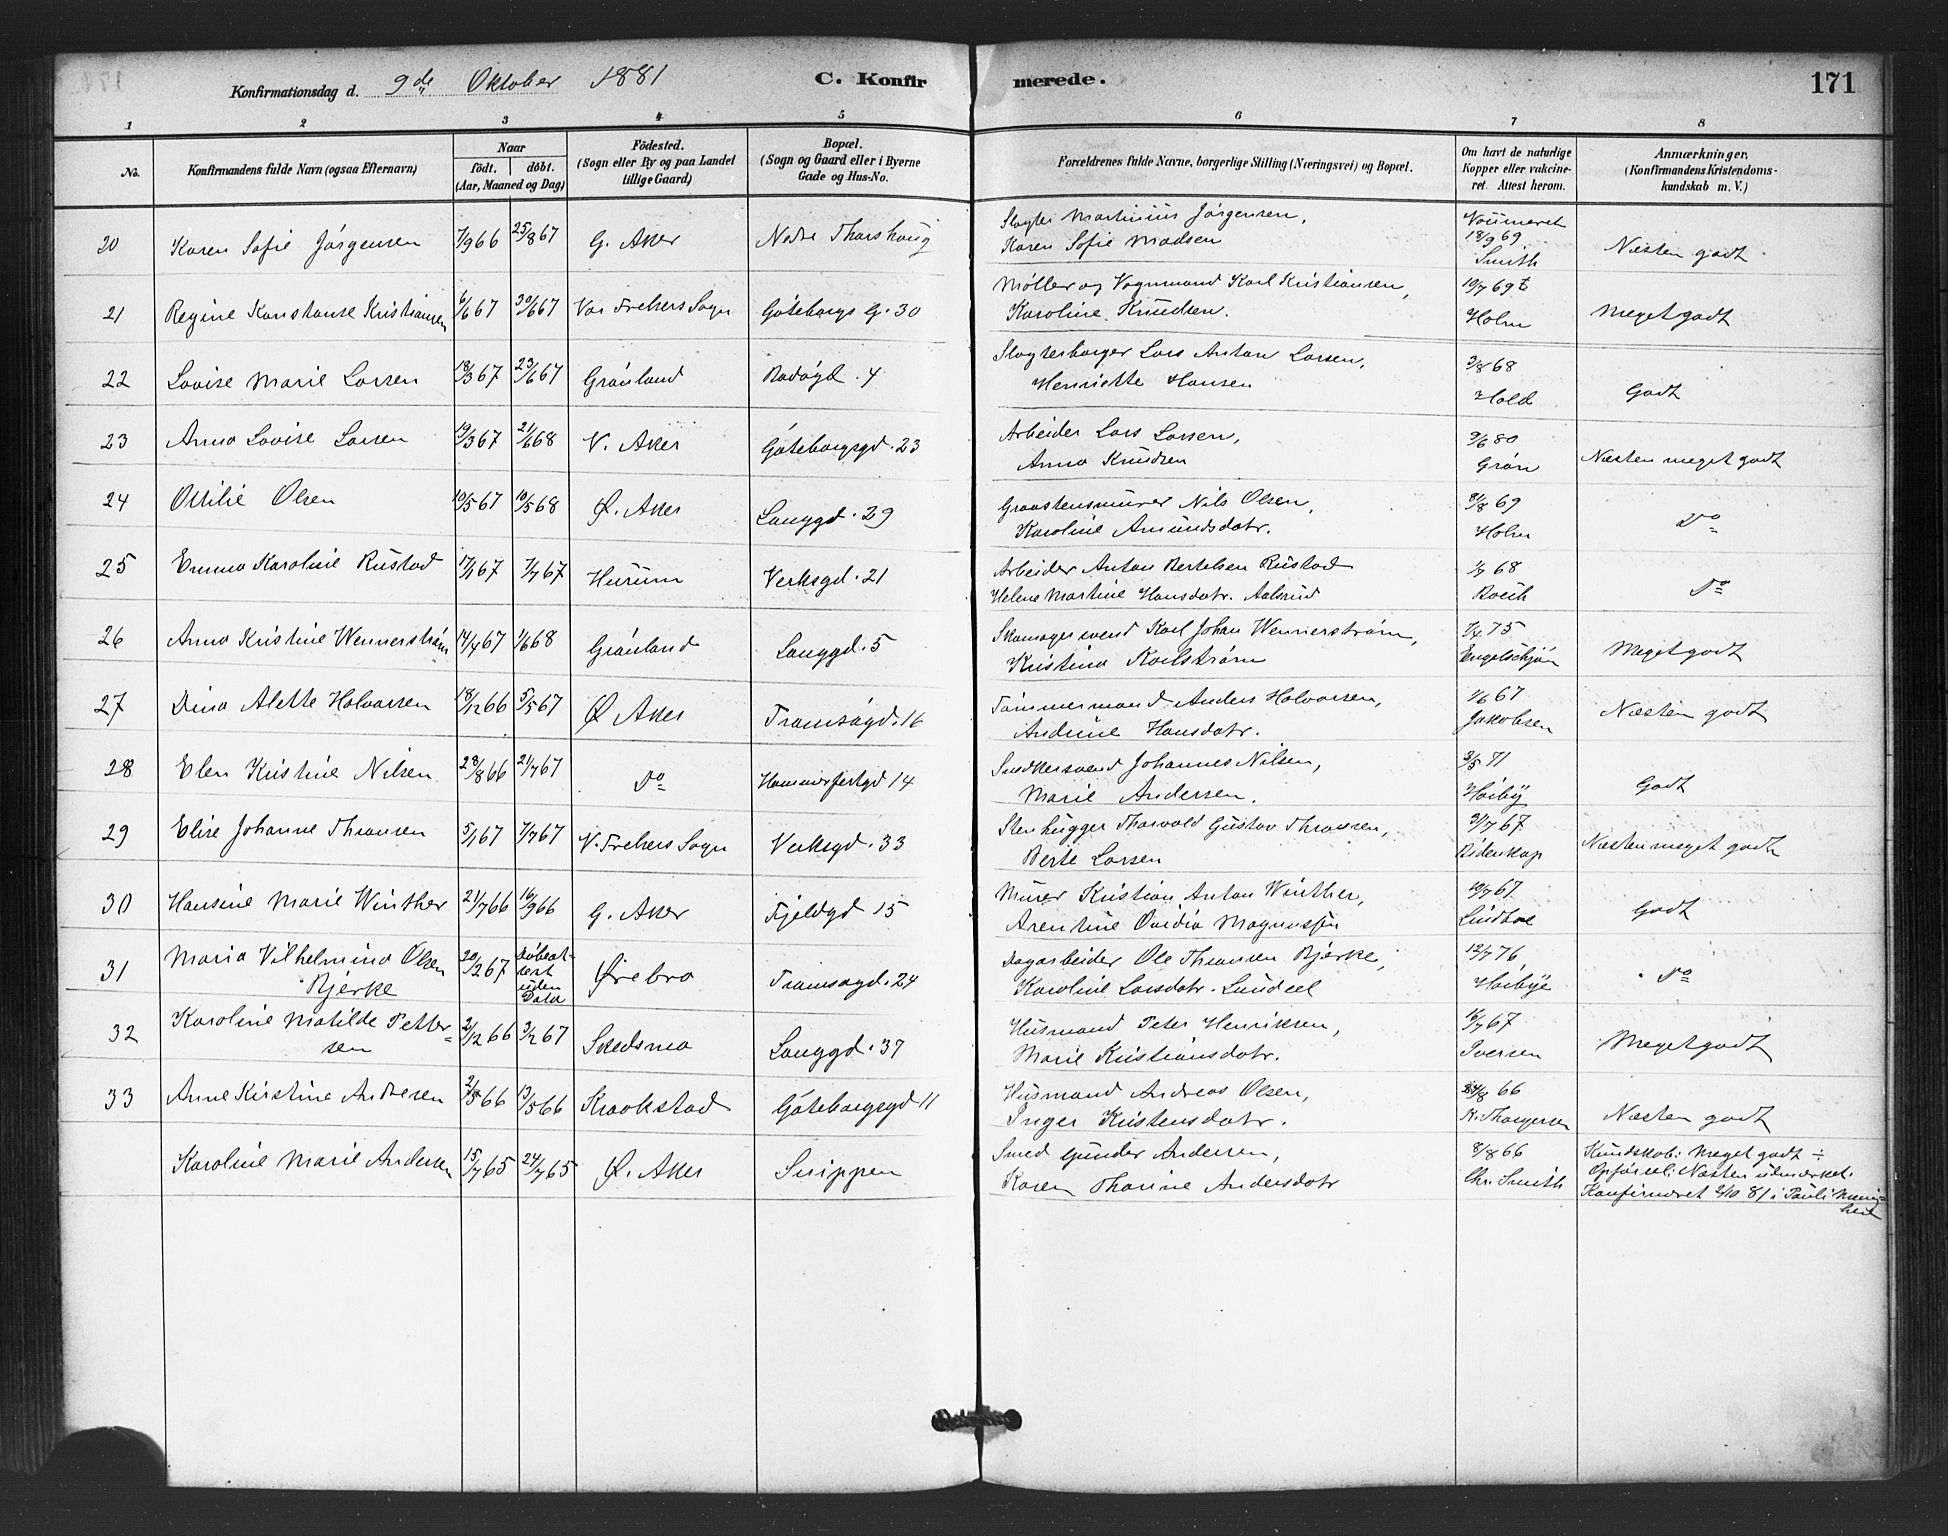 Konfirmationsdag d. 9de Oktober 1881 C. Konfirmerede. 171
1 2 3 4 5 6 7 8
No. Konfirmandens fulde Navn (ogsaa Efternavn) Naar födt. döbt. (Aar, Maaned og Dag) Födested. (Sogn eller By og paa Landet tillige Gaard) Bopæl. (Sogn og Gaard eller i Byerne Gade og Hus-No. Forældrenes fulde Navne, borgerlige Stilling (Næringsvei) og Bopæl. Om havt de naturlige Kopper eller vakcineret. Attest herom. Anmærkninger. (Konfirmandens Kristendomskundskab m. V.)
20 Karen Sofie Jørgensen 7/9 66 25/8 67 G. Aker Nedre Thorshaug Slagter Martinius Jørgensen, Karen Sofie Madsen 18/9 69 Smith Næsten godt
21 Regine Konstanse Kristiansen 6/6 67 30/6 67 Vor Frelsers Sogn Göteborgs G. 30 Møller og Vognmand Karl Kristiansen, Karoline Knudsen. 19/7 69 Holm Meget godt
22 Lovise Marie Larsen 18/3 67 23/6 67 Grönland Bodögd. 4 Slagterborger Lars Anton Larsen, Henriette Hansen 3/8 68 Hald Godt
23 Anna Lovise Larsen 19/3 67 21/6 68 V. Aker Göteborgsgd. 23 Arbeider Lars Larsen, Anna Knudsen 9/6 80 Grøn Næsten meget godt
24 Ottilie Olsen 10/5 67 10/5 68 Ø. Aker Langgd. 29 Graastensmurer Nils Olsen, Karoline Amundsdatr. 31/8 69 Holm Do
25 Emma Karoline Rustad 17/1 67 7/7 67 Hurum Verksgd. 21 Arbeider Anton Bertelsen Rustad Helene Martine Hansdatr. Aalsrud 1/7 68 Do
26 Anna Kristine Wennerstrøm 14/4 67 1/6 68 Grönland Langgd. 5 Skomagersvend Karl Johan Wennerstrøm, Kristina Karlstrøm 7/4 75 Engelschjøn Meget godt
27 Dina Alette Halvorsen 18/12 66 5/5 67 Ø Aker Tromsøgd. 16 Tømmermand Anders Halvorsen, Andrine Hansdatr. 1/6 67 Jakobsen Næsten godt
28 Elen Kristine Nilsen 28/8 66 21/7 67 Do Hammerfestgd 14 Snedkersvend Johannes Nilsen, Marie Andersen. 3/5 71 Høiby Godt
29 Elise Johanne Thransen 5/1 67 7/7 67 V. Frelsers Sogn Verksgd. 33 Stenhugger Thorvald Gustav Thransen, Berte Larsen 31/7 67 Bidenkap Næsten meget godt
30 Hansine Marie Winther 21/7 66 16/9 66 G. Aker Fjeldgd 15 Murer Kristian Anton Winther, Arentine Ovidia Magnussen 19/7 67 Godt
31 Maria Vilhelmina Olsen Bjerke 20/2 67 Døbeattest uden Data Örebro Tromsøgd. 24 Dagarbeider Ole Thransen Bjerke, Karoline Larsdatr. Lundeel 12/7 76 Høibye Do
32 Karoline Matilde Pettersen 2/12 66 3/2 67 Skedsmo Langgd. 37 Husmand Peter Henriksen, Marie Kristiansdatr. 16/7 67 Iversen Meget godt
33 Anne Kristine Andresen 2/5 66 13/5 66 Kraakstad Göteborgsgd 11 Husmand Andreas Olsen, Inger Kristensdatr. 24/8 66 Næsten godt
Karoline Marie Andersen 15/7 65 24/7 65 Ø. Aker Snippen Smed Gunder Andersen, Karen Thorine Andersdatr 8/8 66 Chr. Smith Kundskab: Meget godt ÷
Opförsel: Næsten udmærket.
Konfirmeret 2/10 81 i Pauli Menighed